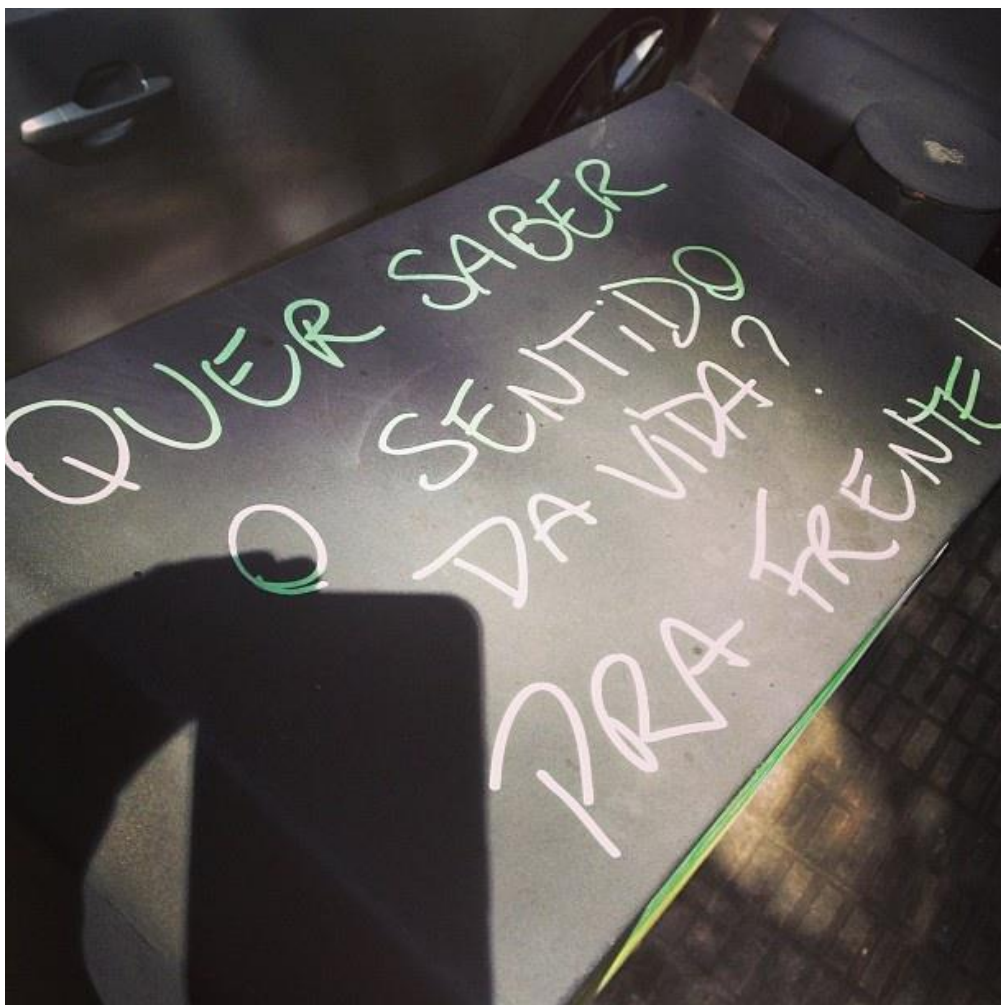 QUER SABER
O SENTIDO
DA VIDA?
PRA FRENTE!